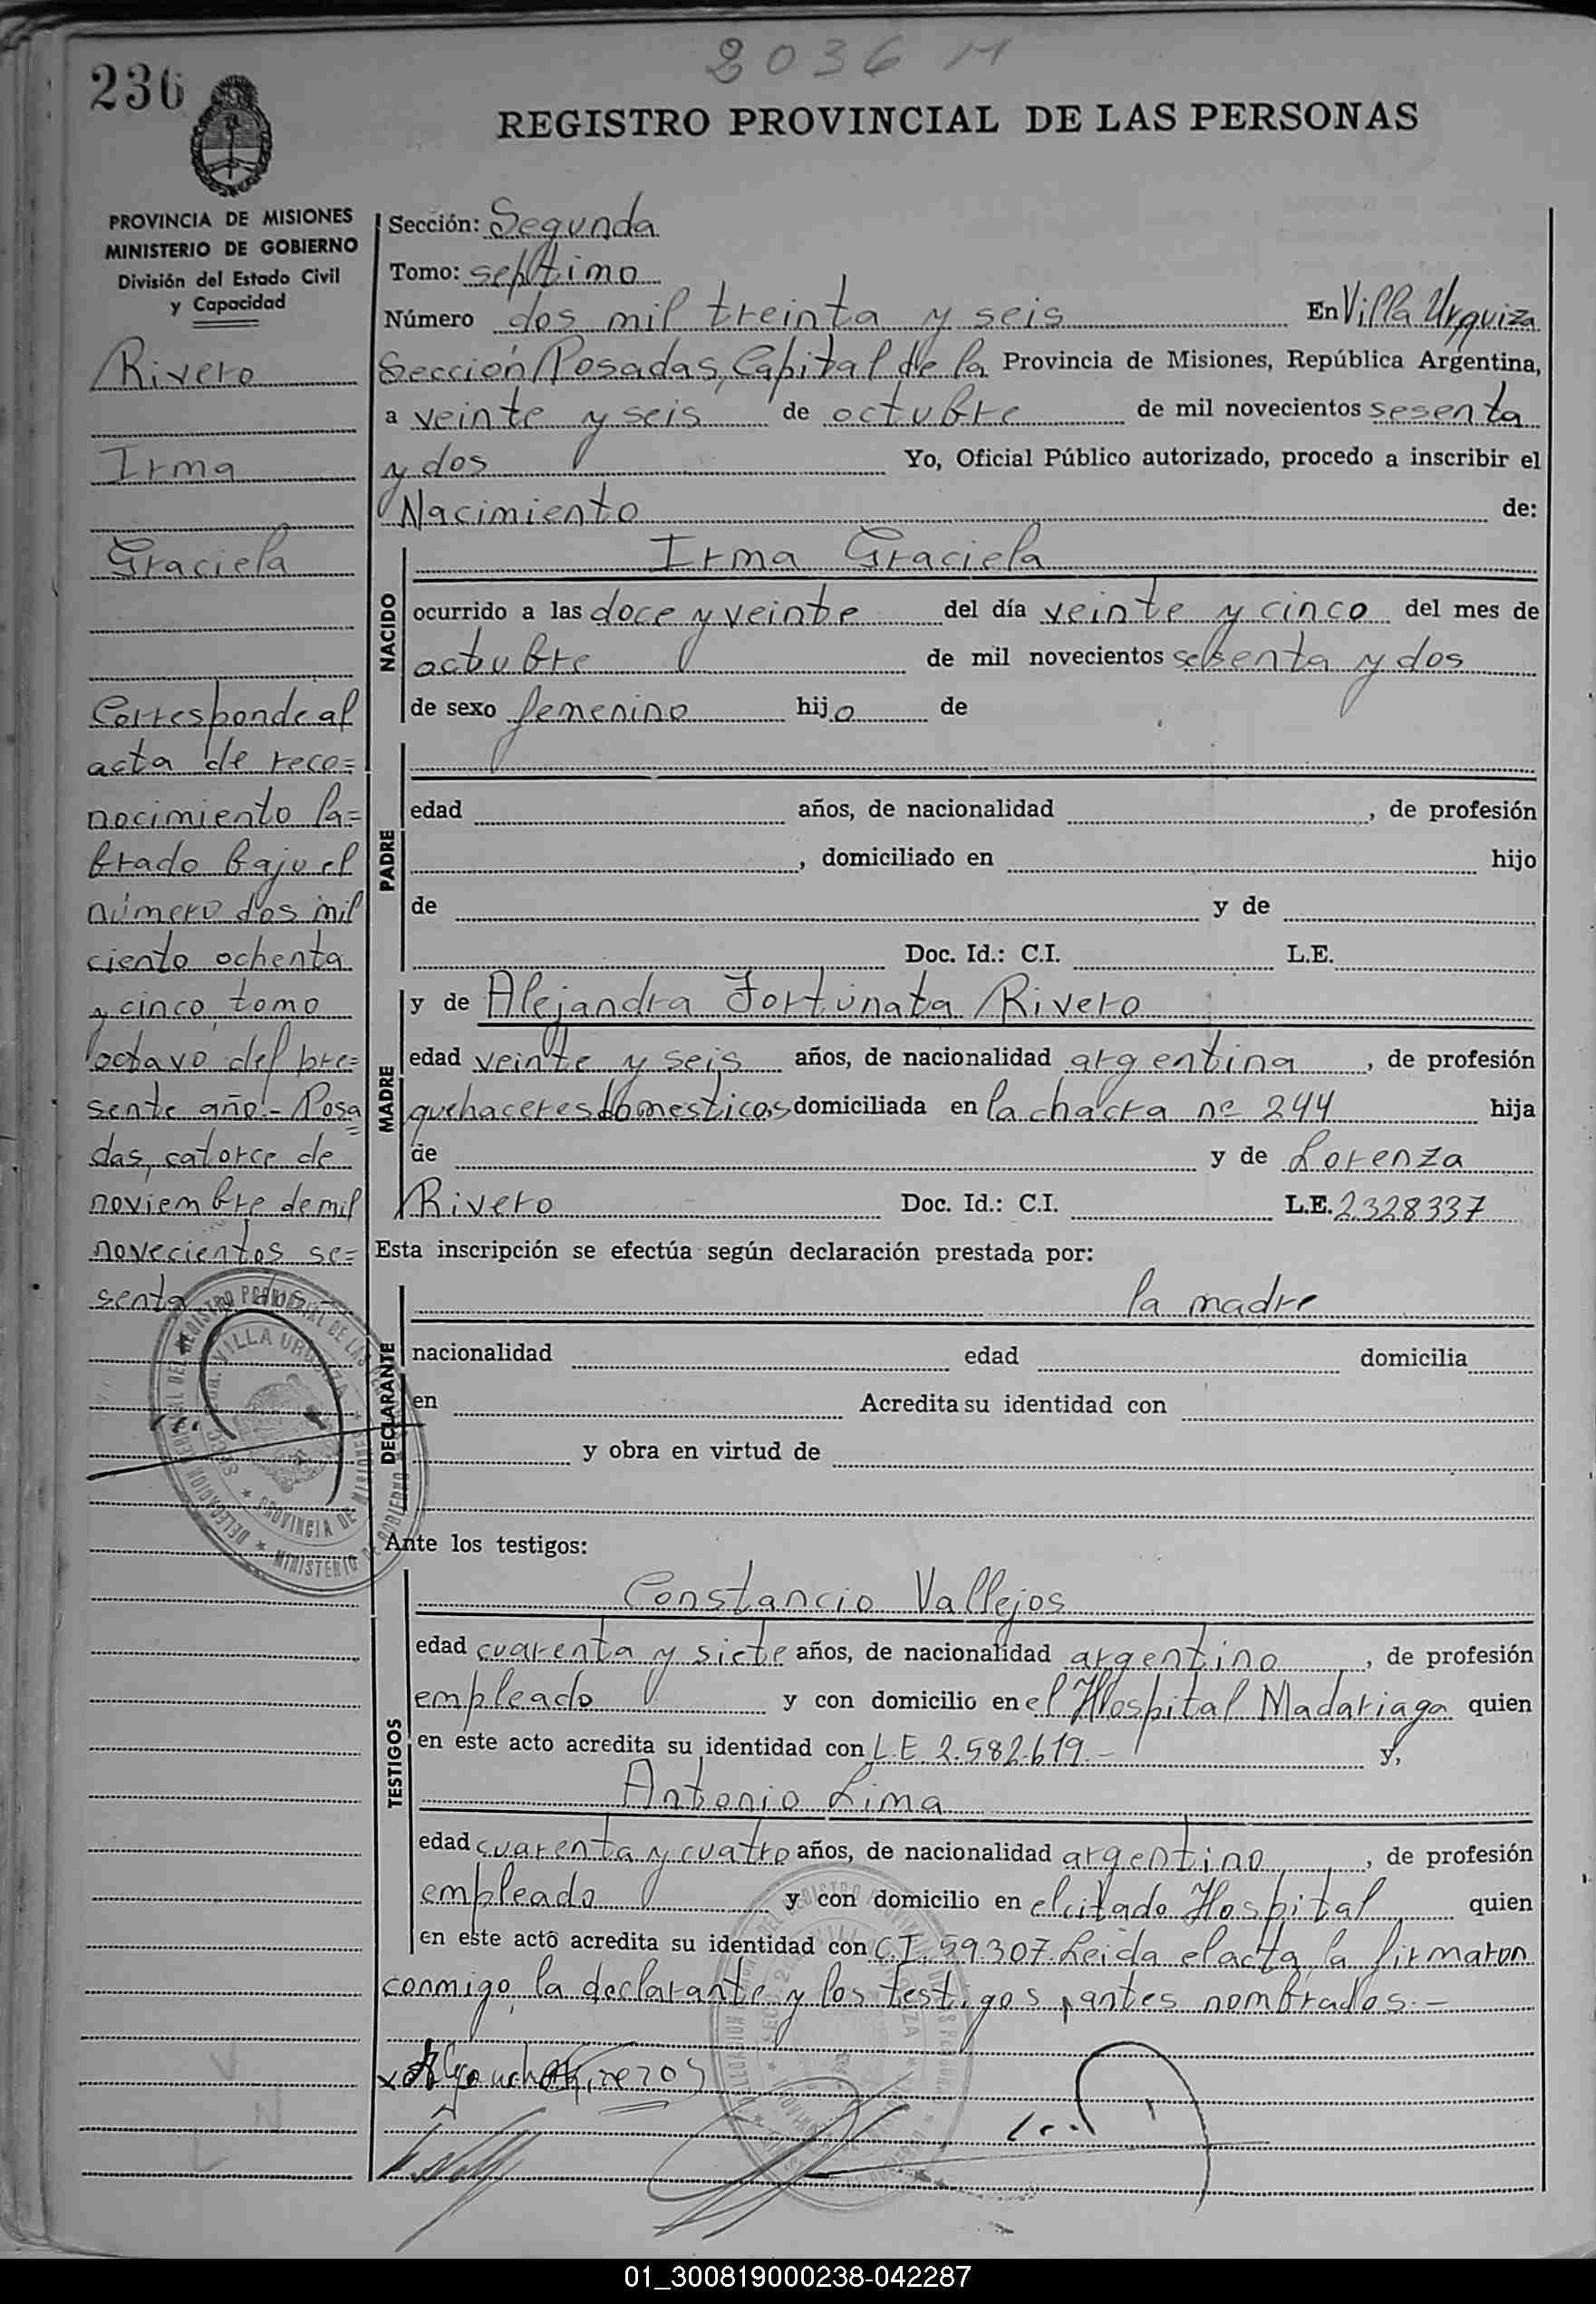 2036 M
236
REGISTRO PROVINCIAL DE LAS PERSONAS
PROVINCIA DE MISIONES
MINISTERIO DE GOBIERNO
División del Estado Civil
y Capacidad
Rivero
Irma
Graciela
Corresponde al
acta de reco=
nocimiento la=
brado bajo el
número dos mil
ciento ochenta
y cinco, tomo
octavo del pre=
sente año.- Posa=
das, catorce de
noviembre de mil
novecientos se=
senta y dos.-
Sección: Segunda
Tomo: septimo
Número dos mil treinta y seis En Villa Urquiza
Sección Posadas, Capital de la Provincia de Misiones, República Argentina,
a veinte y seis de octubre de mil novecientos sesenta
y dos Yo, Oficial Público autorizado, procedo a inscribir el
Nacimiento de:
NACIDO
Irma Graciela
ocurrido a las doce y veinte del día veinte y cinco del mes de
octubre de mil novecientos sesenta y dos
de sexo femenino hijo de
PADRE
edad años, de nacionalidad , de profesión
, domiciliado en hijo
de y de
Doc. Id.: C.I. L.E.
MADRE
y de Alejandra Fortunata Rivero
edad veinte y seis años, de nacionalidad argentina , de profesión
quehaceres domesticos domiciliada en la chacra nº 244 hija
de y de Lorenza
Rivero Doc. Id.: C.I. L.E. 2.328337
Esta inscripción se efectúa según declaración prestada por:
DECLARANTE
la madre
nacionalidad edad domicilia
en Acredita su identidad con
y obra en virtud de
Ante los testigos:
TESTIGOS
Constancio Vallejos
edad cuarenta y siete años, de nacionalidad argentino , de profesión
empleado y con domicilio en el Hospital Madariaga quien
en este acto acredita su identidad con L.E 2.582.619.- y,
Antonio Lima
edad cuarenta y cuatro años, de nacionalidad argentino , de profesión
empleado y con domicilio en el citado Hospital quien
en este acto acredita su identidad con C.I. 59.307. Leida el acta, la firmaron
conmigo, la declarante y los testigos antes nombrados.-
01_300819000238-042287